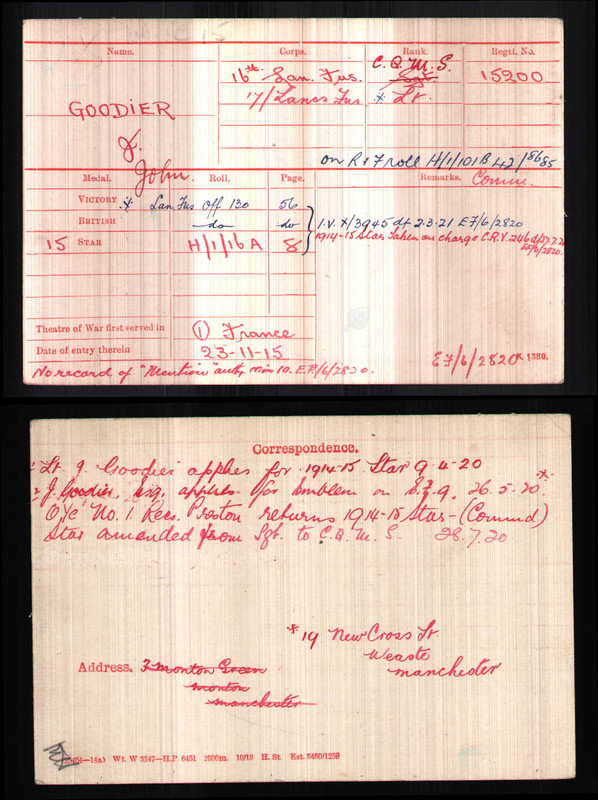 Name. Corps. Rank. Regtl. No.
GOODIER 16th Lan. Fus. C.Q.M.S. 15200
Sgt.
J. 17/Lancs Fus * Lt.
John. on R & F roll H/1/101B 42/8685
Medal. Roll. Page. Remarks. Comm.
VICTORY * Lan Fus Off 130 56
BRITISH do do I.V. X/3945 dt 2.3.21 EF/6/2820
15 STAR H/1/16 A 8 1914-15 Star Taken on charge C.R.V. 246
EF/6/2820.
Theatre of War first served in (1) France
Date of entry therein 23-11-15
EF/6/2820 K 1380.
No record of "Mention" auth, min 10. EF/6/2820.
Correspondence.
Lt. J. Goodier applies for 1914-15 Star 9-4-20
J. Goodier, Esq. applies for Emblem on 26.5.20 *
O i/c No. 1. Recs. Preston returns 1914-15 Star - (Commd)
Star amended from Sgt. to C.Q.M.S. 28.7.20
* 19 New Cross St
Weaste
Manchester
Address. 3 Monton Green
Monton
Manchester
Wt. W 5347—H.P. 6451 2000m. 10/19 H. St Est. 5450/1256